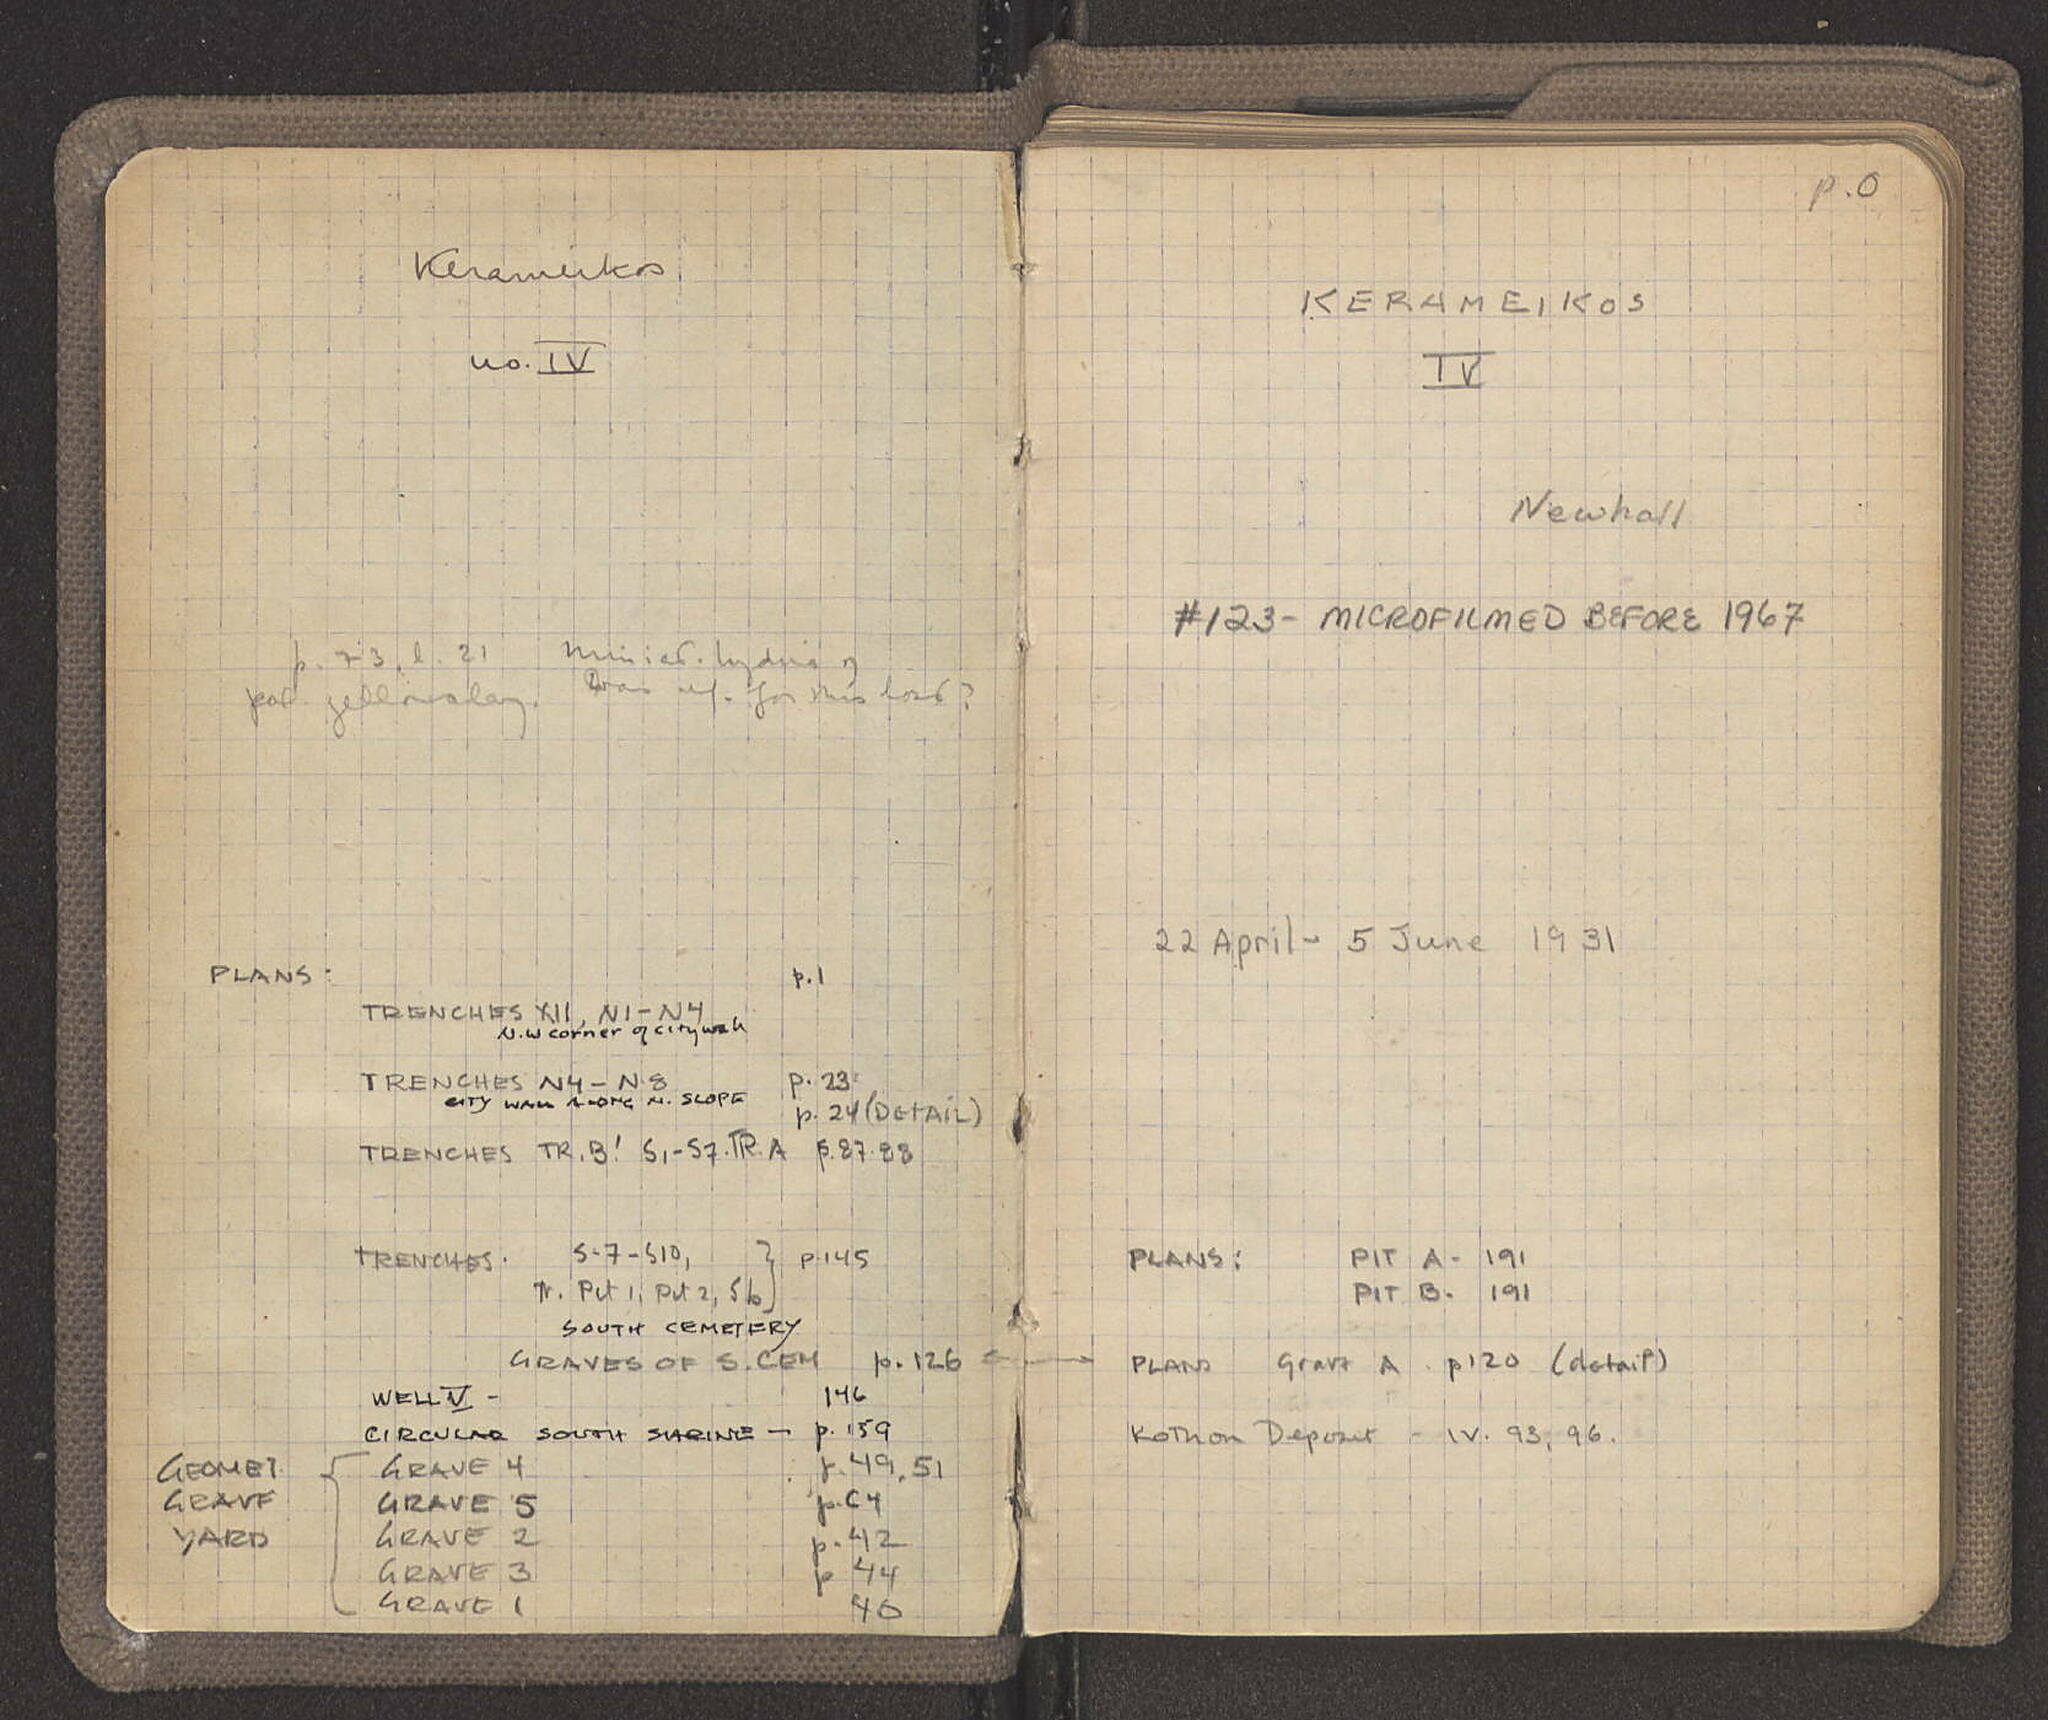 Kerameikos
no. IV
p. 73, l. 21 Miniat. hydria of
pal. yellow clay. Was inf. for this lost?
PLANS: p.1
TRENCHES XII, N1-N4
N.W corner of city wall
TRENCHES N4-N8 p. 23
CITY WALL ALONG N. SLOPE
p. 24 (DETAIL)
TRENCHES TR. B! S1-S7. TR. A p. 87-88
TRENCHES. S-7-S10, } p.145
Tr. Pit 1, Pit 2, 5b
SOUTH CEMETERY
GRAVES OF S. CEM p. 126
WELL V - 146
CIRCULAR SOUTH SHRINE - p. 159
GEOMET. GRAVE YARD
GRAVE 4 p. 49, 51
GRAVE 5 p. 64
GRAVE 2 p. 42
GRAVE 3 p 44
GRAVE 1 40
p. 0
KERAMEIKOS
IV
Newhall
#123- MICROFILMED BEFORE 1967
22 April - 5 June 1931
PLANS: PIT A - 191
PIT B. 191
PLANS Grave A. p120 (detail)
Kothon Deposit - IV. 93, 96.